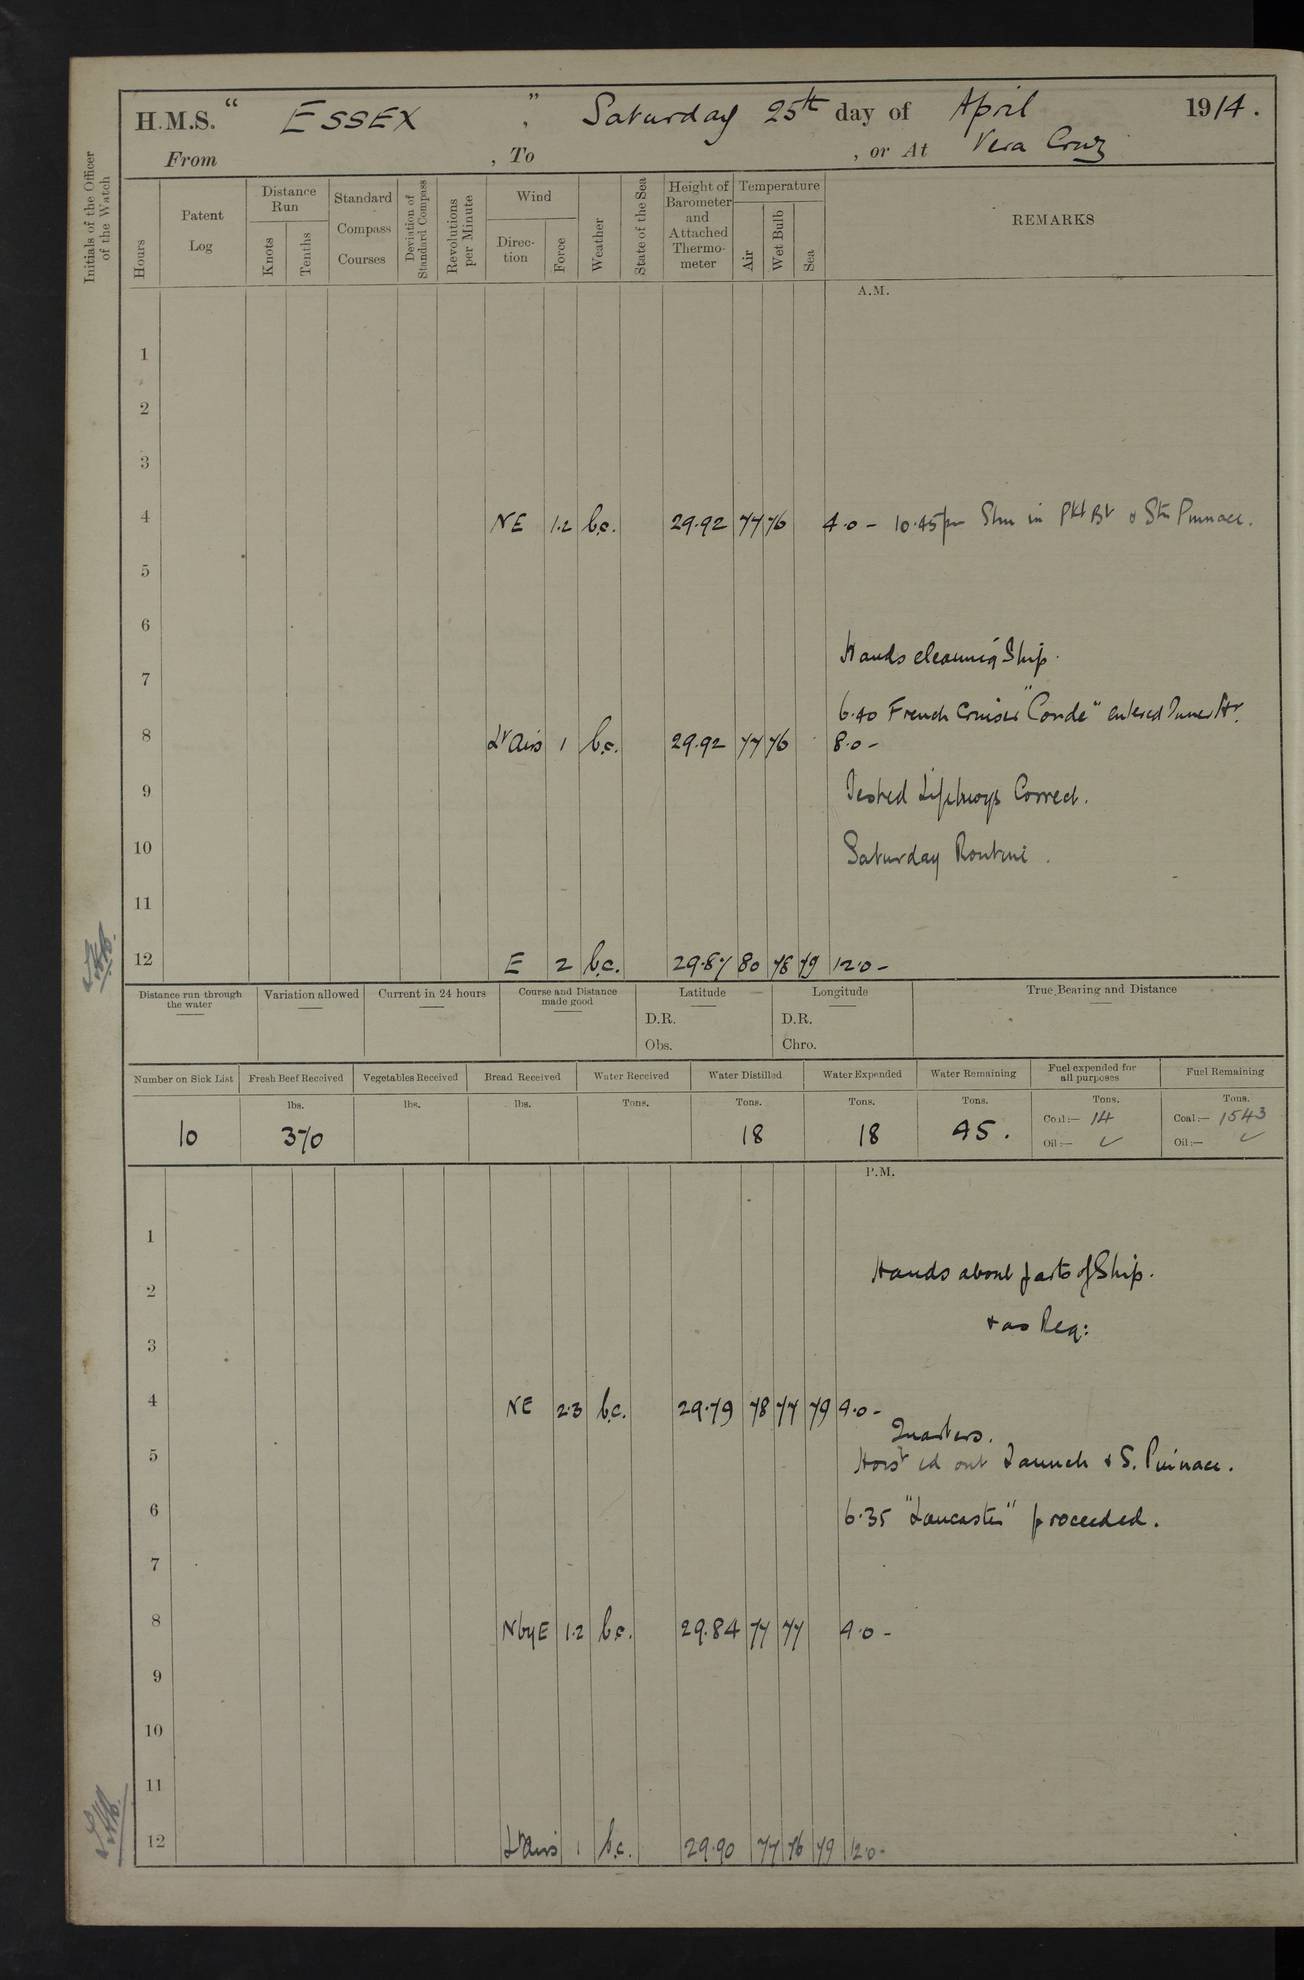 H.M.S. “ ESSEX ”, Saturday 25th day of April 1914.
From , To , or At Vera Cruz
Initials of the Officer of the Watch
Hours
Patent Log
Distance Run
Knots
Tenths
Standard Compass Courses
Deviation of Standard Compass
Revolutions per Minute
Wind
Direc-tion
Force
Weather
State of the Sea
Height of Barometer and Attached Thermo-meter
Temperature
Air
Wet Bulb
Sea
REMARKS
A.M.
1
2
3
4 NE 1.2 b.c. 29.92 77 76 4.0 - 10.45pm in Pkt Bt & Stm Pinnace.
5
6
Hands cleaning Ship.
7
6.40 French Cruiser "Conde" entered Inner Hr.
8 Lt Airs 1 b.c. 29.92 77 76 8.0 -
9 Tested Lifebuoys Correct.
10 Saturday Routine.
11
12 E 2 b.c. 29.87 80 78 79 12.0 -
Distance run through the water
Variation allowed
Current in 24 hours
Course and Distance made good
Latitude
D.R.
Obs.
Longitude
D.R.
Chro.
True Bearing and Distance
Number on Sick List Fresh Beef Received Vegetables Received Bread Received Water Received Water Distilled Water Expended Water Remaining Fuel expended for all purposes Fuel Remaining
lbs. lbs. lbs. Tons. Tons. Tons. Tons. Tons. Tons.
10 370 18 18 45. Coal:— 14 Coal:— 1543
Oil:— ✓ Oil:— ✓
P.M.
1
Hands about parts of Ship.
2
& as Req:
3
4 NE 2.3 b.c. 29.79 78 77 79 4.0 -
Quarters.
5 Hoisted out Launch & S. Pinnace.
6 6.35 "Lancaster" proceeded.
7
8 N by E 1.2 b.c. 29.84 77 77 4.0 -
9
10
11
12 Lt Airs 1 b.c. 29.90 77 76 79 12.0 -